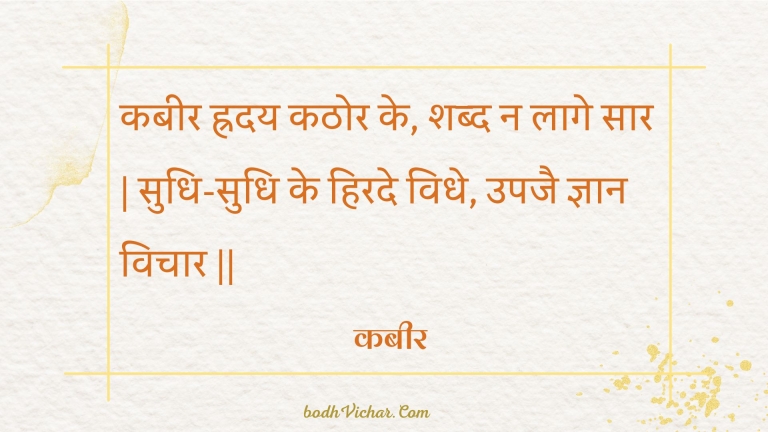 कबीर ह्रदय कठोर के, शब्द न लागे सार
| सुधि-सुधि के हिरदे विधे, उपजै ज्ञान
विचार ||
कबीर
bodhVichar.Com